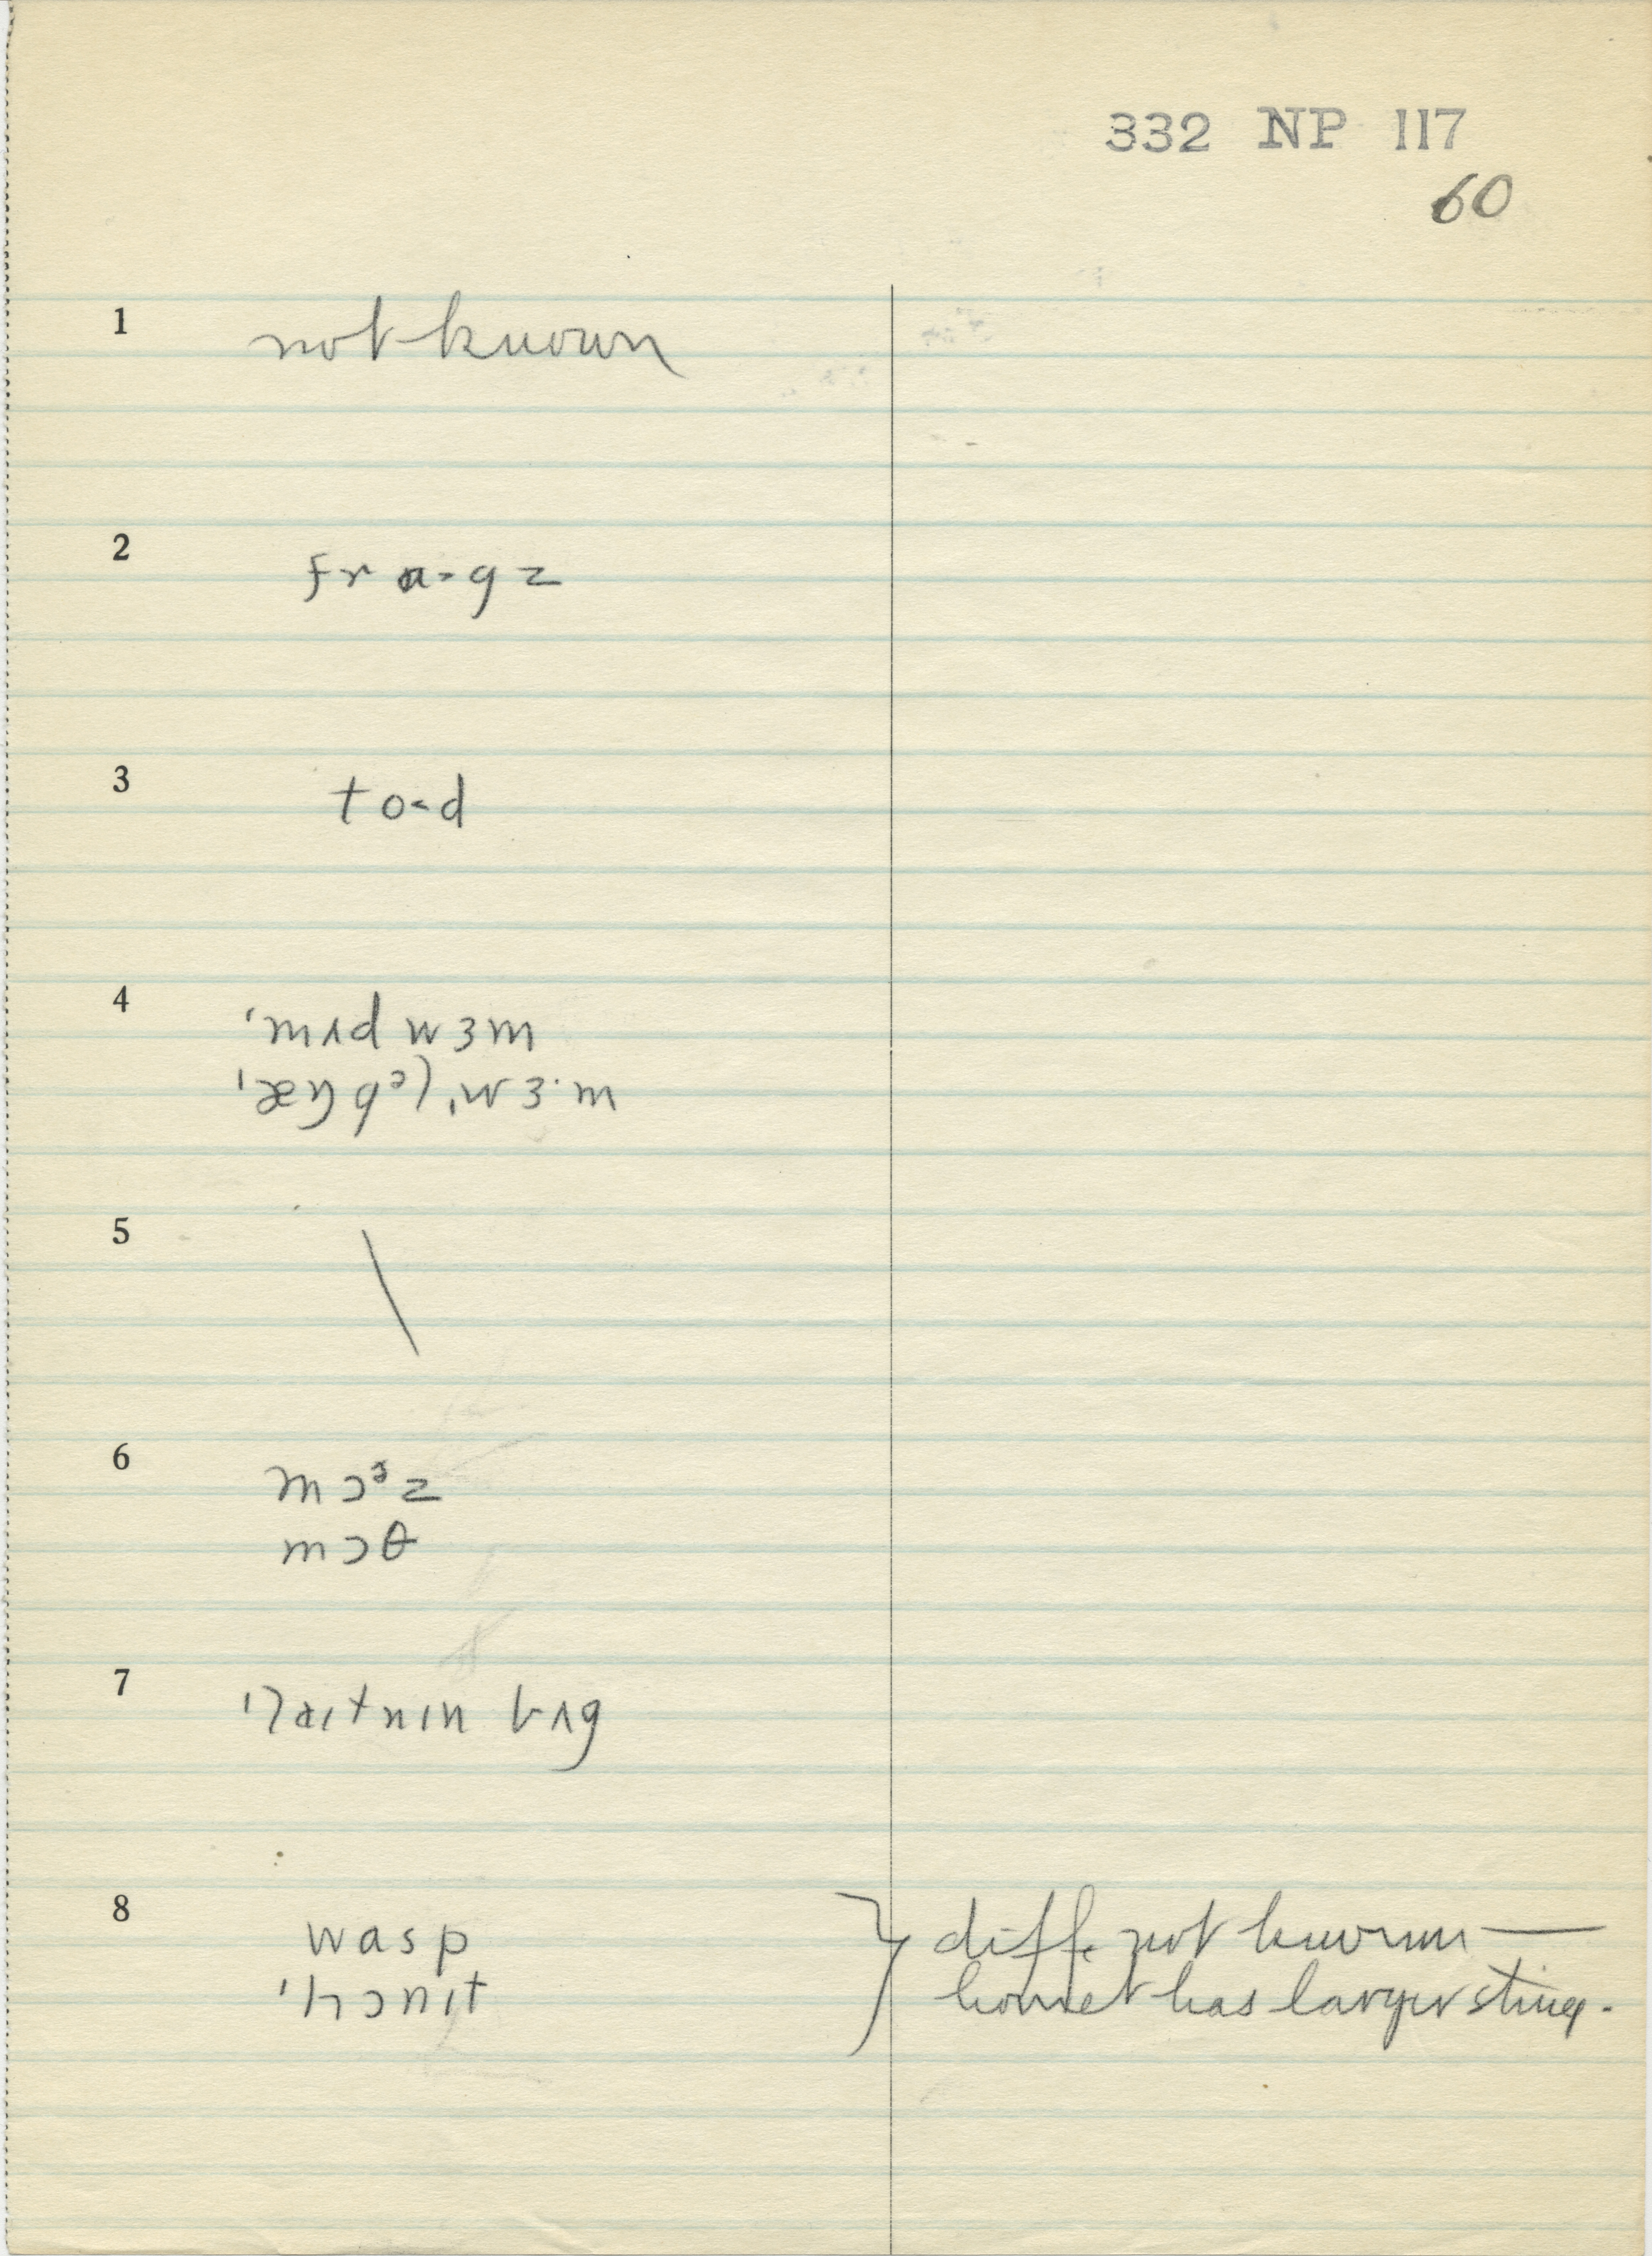 332 NP 117
60
1 not known
2 frɑ·gz
3 to·d
4 ˈmʌd wɜm
5 \
6 mɔᶾz
mɔθ
7
8 wasp } diff. not known —
hornet has larger sting.